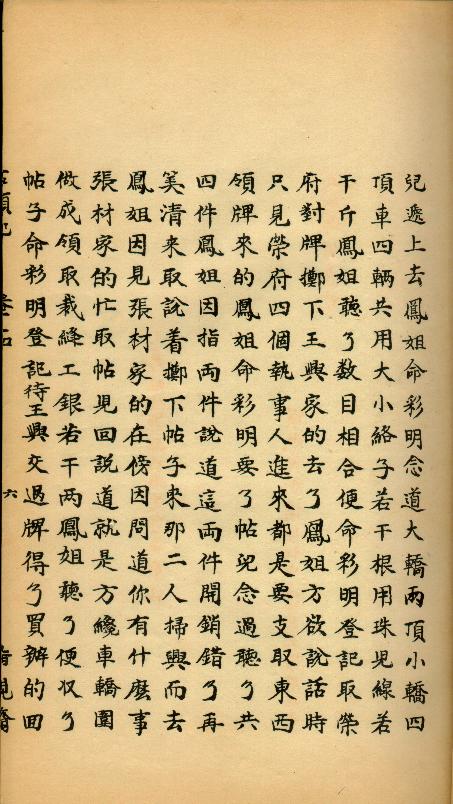 兒遞上去鳳姐命彩明念道大轎兩頂小轎四
頂車四輛共用大小絡子若干根用珠兒線若
干斤鳳姐聽了数目相合便命彩明登記取榮
府對牌擲下王興家的去了鳳姐方欲說話時
只見榮府四個執事人進來都是要支取東西
領牌來的鳳姐命彩明要了帖兒念過聽了共
四件鳳姐因指両件說道這両件開銷錯了再
筭清来取說着擲下帖子来那二人掃興而去
鳳姐因見張材家的在傍因問道你有什麽事
張材家的忙取帖兒回說道就是方纔車轎圍
做成領取裁縫工銀若干两鳳姐聽了便収了
帖子命彩明登記待王興交過牌得了買辦的回
六